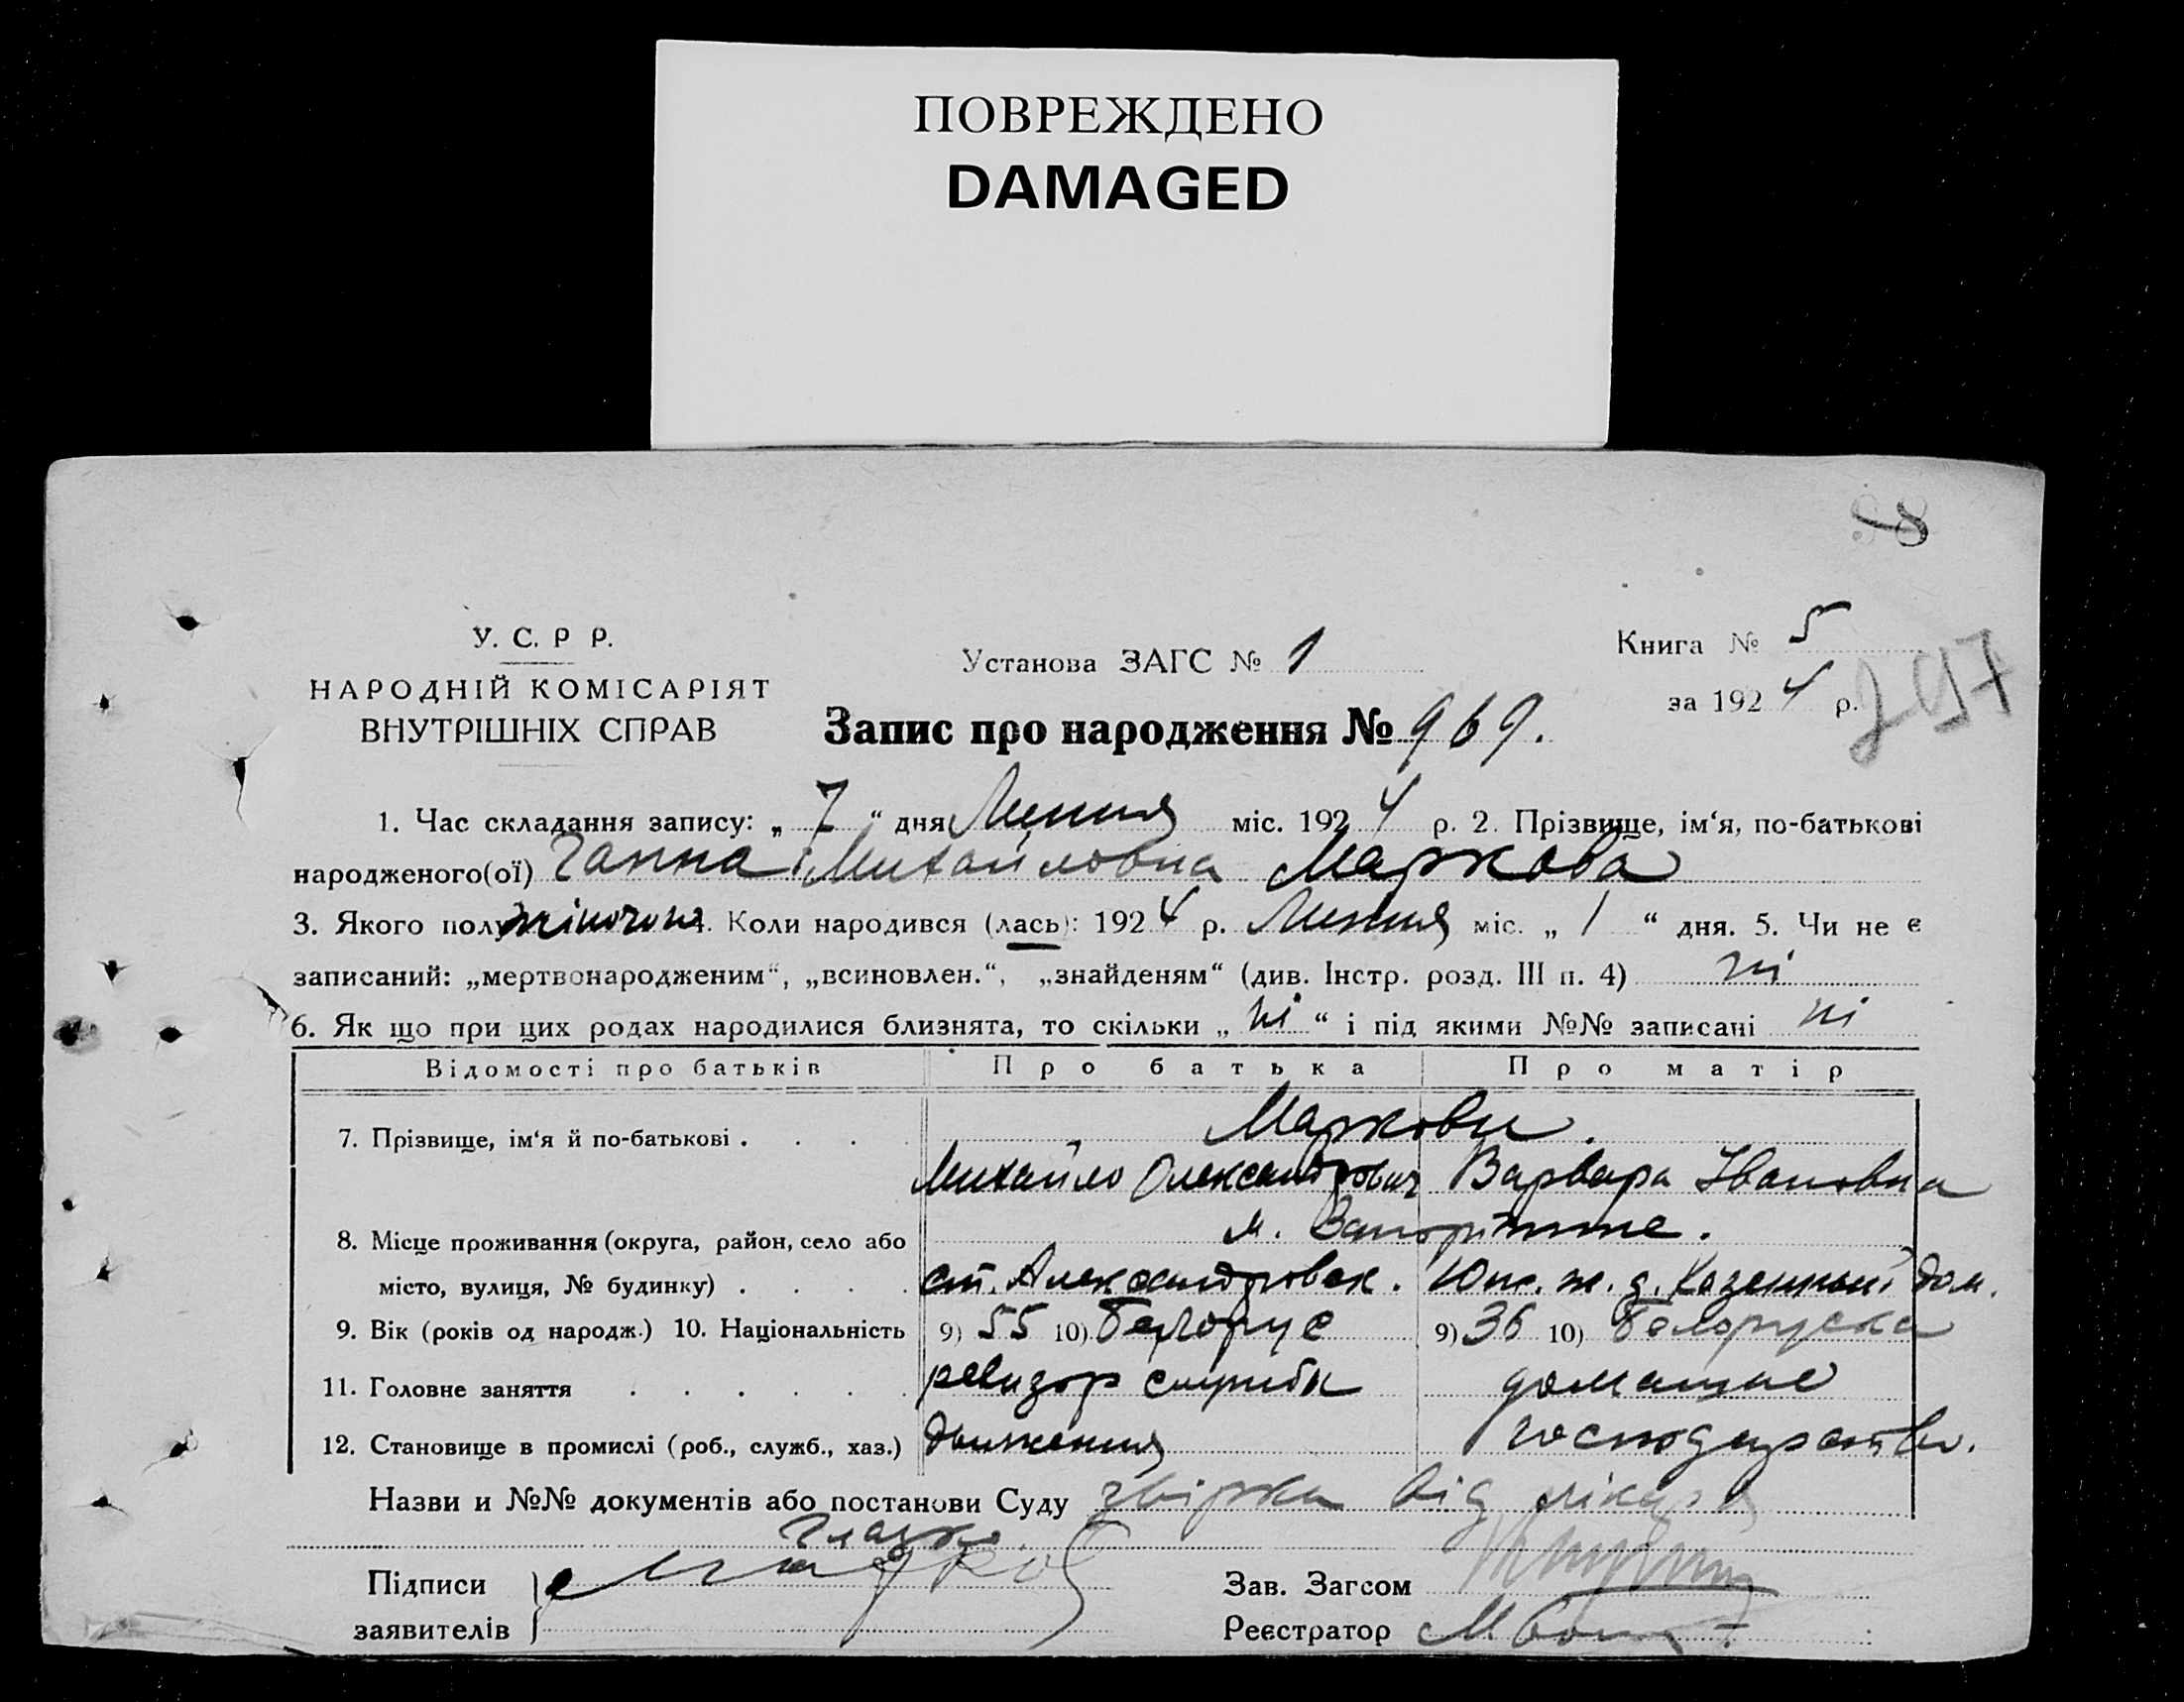 ПОВРЕЖДЕНО
DAMAGED
У. С. Р Р.
НАРОДНІЙ КОМІСАРІЯТ
ВНУТРІШНІХ СПРАВ
Установа ЗАГС № 1
Книга № 5
за 1924 р.
Запис про народження № 969.
1. Час складання запису: „ 7 “ дня Липня міс. 1924 р. 2. Прізвище, ім‘я, по-батькові
народженого(ої) Ганна Михайловна Маркова
3. Якого полу жіночого 4. Коли народився (лась): 1924 р. Липня міс. „ 1 “ дня. 5. Чи не є
записаний: „мертвонародженим“, „всиновлен.“, „знайденям“ (див. Інстр. розд. III п. 4) ні
6. Як що при цих родах народилися близнята, то скільки „ ні “ і під якими №№ записані ні
Відомості про батьків Про батька Про матір
7. Прізвище, ім‘я й по-батькові . . . . Маркови.
Михайло Олександрович Варвара Івановна
8. Місце проживання (округа, район, село або м. Запоріжже.
місто, вулиця, № будинку) . . . . ст. Александровск. Юж. ж. д. Казенный дом.
9. Вік (років од народж.) 10. Національність 9) 55 10) белорус 9) 36 10) белоруска
11. Головне заняття . . . . . . ревизор служби домашнє
12. Становище в промислі (роб., служб., хаз.) движения господарство.
Назви и №№ документів або постанови Суду від лікаря
Підписи Марков Зав. Загсом
заявителів Реєстратор